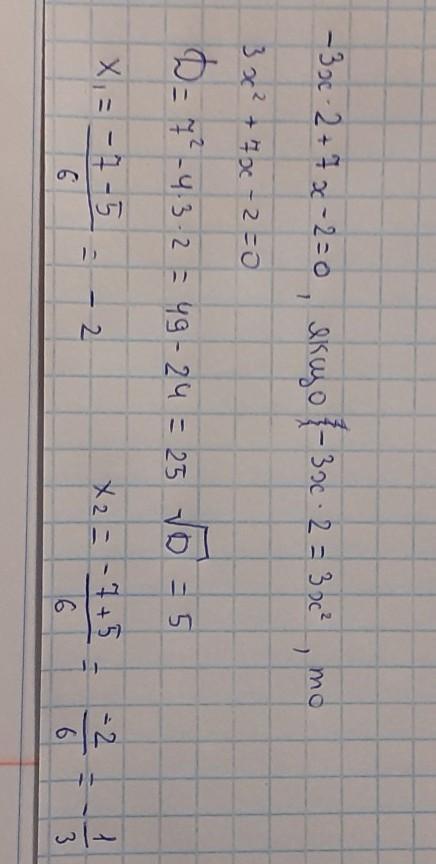 -3x·2+7x-2=0, якщо -3x·2=3x², то
3x²+7x-2=0
D=7²-4·3·2=49-24=25 √D=5
x₁=(-7-5)/6=-2 x₂=(-7+5)/6=-2/6=-1/3